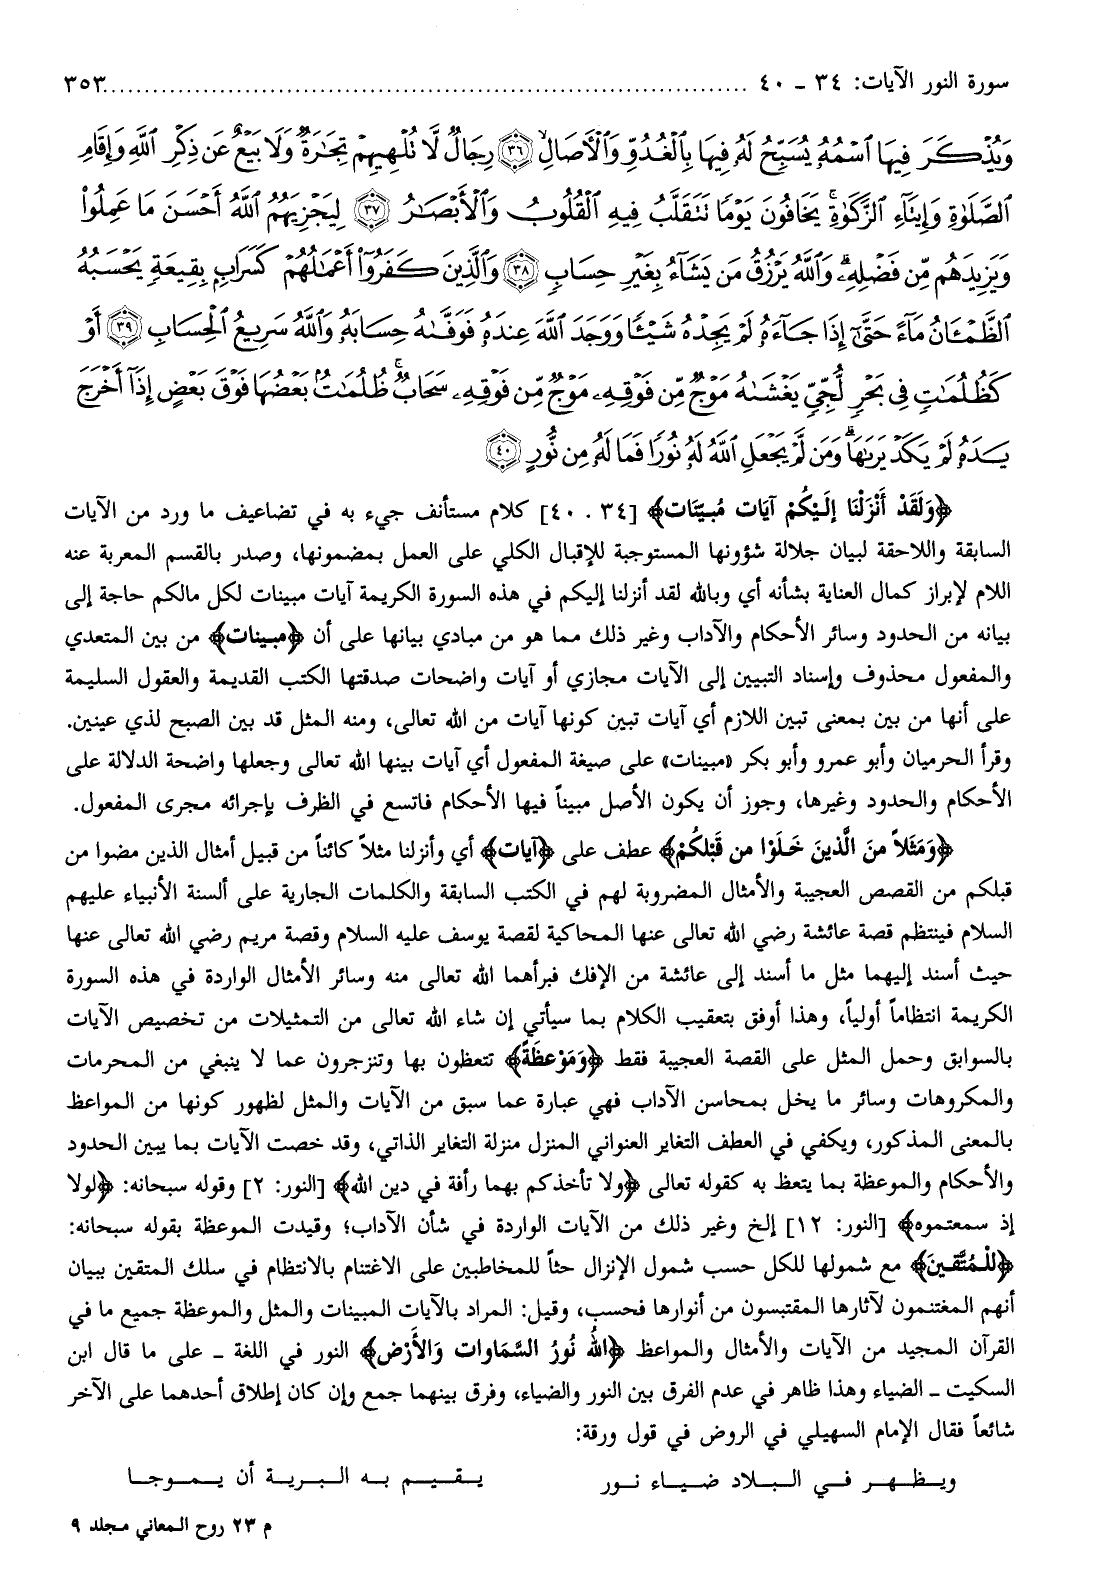 سورة النور الآيات: ٣٤ - ٤٠ ........................................................................ ٣٥٣
وَيُذْكَرَ فِيهَا ٱسْمُهُۥ يُسَبِّحُ لَهُۥ فِيهَا بِٱلْغُدُوِّ وَٱلْأَصَالِ ﴿٣٦﴾ رِجَالٌ لَّا تُلْهِيهِمْ تِجَٰرَةٌ وَلَا بَيْعٌ عَن ذِكْرِ ٱللَّهِ وَإِقَامِ
ٱلصَّلَوٰةِ وَإِيتَآءِ ٱلزَّكَوٰةِ ۙ يَخَافُونَ يَوْمًا تَتَقَلَّبُ فِيهِ ٱلْقُلُوبُ وَٱلْأَبْصَٰرُ ﴿٣٧﴾ لِيَجْزِيَهُمُ ٱللَّهُ أَحْسَنَ مَا عَمِلُوا۟
وَيَزِيدَهُم مِّن فَضْلِهِۦ ۗ وَٱللَّهُ يَرْزُقُ مَن يَشَآءُ بِغَيْرِ حِسَابٍ ﴿٣٨﴾ وَٱلَّذِينَ كَفَرُوٓا۟ أَعْمَٰلُهُمْ كَسَرَابٍۭ بِقِيعَةٍ يَحْسَبُهُ
ٱلظَّمْـَٔانُ مَآءً حَتَّىٰٓ إِذَا جَآءَهُۥ لَمْ يَجِدْهُ شَيْـًٔا وَوَجَدَ ٱللَّهَ عِندَهُۥ فَوَفَّىٰهُ حِسَابَهُۥ وَٱللَّهُ سَرِيعُ ٱلْحِسَابِ ﴿٣٩﴾ أَوْ
كَظُلُمَٰتٍ فِى بَحْرٍ لُّجِّىٍّ يَغْشَىٰهُ مَوْجٌ مِّن فَوْقِهِۦ مَوْجٌ مِّن فَوْقِهِۦ سَحَابٌ ۚ ظُلُمَٰتٌۢ بَعْضُهَا فَوْقَ بَعْضٍ إِذَآ أَخْرَجَ
يَدَهُۥ لَمْ يَكَدْ يَرَىٰهَا ۗ وَمَن لَّمْ يَجْعَلِ ٱللَّهُ لَهُۥ نُورًا فَمَا لَهُۥ مِن نُّورٍ ﴿٤٠﴾
﴿وَلَقَدْ أَنْزَلْنَا إِلَيْكُمْ آيَات مُبيِّنَات﴾ [٣٤ . ٤٠] كلام مستأنف جيء به في تضاعيف ما ورد من الآيات
السابقة واللاحقة لبيان جلالة شؤونها المستوجبة للإقبال الكلي على العمل بمضمونها، وصدر بالقسم المعربة عنه
اللام لإبراز كمال العناية بشأنه أي وبالله لقد أنزلنا إليكم في هذه السورة الكريمة آيات مبينات لكل مالكم حاجة إلى
بيانه من الحدود وسائر الأحكام والآداب وغير ذلك مما هو من مبادي بيانها على أن ﴿مبينات﴾ من بين المتعدي
والمفعول محذوف وإسناد التبيين إلى الآيات مجازي أو آيات واضحات صدقتها الكتب القديمة والعقول السليمة
على أنها من بين بمعنى تبين اللازم أي آيات تبين كونها آيات من الله تعالى، ومنه المثل قد بين الصبح لذي عينين.
وقرأ الحرميان وأبو عمرو وأبو بكر «مبينات» على صيغة المفعول أي آيات بينها الله تعالى وجعلها واضحة الدلالة على
الأحكام والحدود وغيرها، وجوز أن يكون الأصل مبيناً فيها الأحكام فاتسع في الظرف بإجرائه مجرى المفعول.
﴿وَمَثَلاً منَ الَّذينَ خَلَوْا من قَبْلكُمْ﴾ عطف على ﴿آيات﴾ أي وأنزلنا مثلاً كائناً من قبيل أمثال الذين مضوا من
قبلكم من القصص العجيبة والأمثال المضروبة لهم في الكتب السابقة والكلمات الجارية على ألسنة الأنبياء عليهم
السلام فينتظم قصة عائشة رضي الله تعالى عنها المحاكية لقصة يوسف عليه السلام وقصة مريم رضي الله تعالى عنها
حيث أسند إليهما مثل ما أسند إلى عائشة من الإفك فبرأهما الله تعالى منه وسائر الأمثال الواردة في هذه السورة
الكريمة انتظاماً أولياً، وهذا أوفق بتعقيب الكلام بما سيأتي إن شاء الله تعالى من التمثيلات من تخصيص الآيات
بالسوابق وحمل المثل على القصة العجيبة فقط ﴿وَمَوْعظَةً﴾ تتعظون بها وتنزجرون عما لا ينبغي من المحرمات
والمكروهات وسائر ما يخل بمحاسن الآداب فهي عبارة عما سبق من الآيات والمثل لظهور كونها من المواعظ
بالمعنى المذكور، ويكفي في العطف التغاير العنواني المنزل منزلة التغاير الذاتي، وقد خصت الآيات بما يبين الحدود
والأحكام والموعظة بما يتعظ به كقوله تعالى ﴿ولا تأخذكم بهما رأفة في دين الله﴾ [النور: ٢] وقوله سبحانه: ﴿لولا
إذ سمعتموه﴾ [النور: ١٢] إلخ وغير ذلك من الآيات الواردة في شأن الآداب؛ وقيدت الموعظة بقوله سبحانه:
﴿للْمُتَّقينَ﴾ مع شمولها للكل حسب شمول الإنزال حثاً للمخاطبين على الاغتنام بالانتظام في سلك المتقين ببيان
أنهم المغتنمون لآثارها المقتبسون من أنوارها فحسب، وقيل: المراد بالآيات المبينات والمثل والموعظة جميع ما في
القرآن المجيد من الآيات والأمثال والمواعظ ﴿اللهُ نُورُ السَّمَاوات وَالأَرْض﴾ النور في اللغة ـ على ما قال ابن
السكيت ـ الضياء وهذا ظاهر في عدم الفرق بين النور والضياء، وفرق بينهما جمع وإن كان إطلاق أحدهما على الآخر
شائعاً فقال الإمام السهيلي في الروض في قول ورقة:
ويظهر في البلاد ضياء نور يقيم به البرية أن يموجا
م ٢٣ روح المعاني مجلد ٩